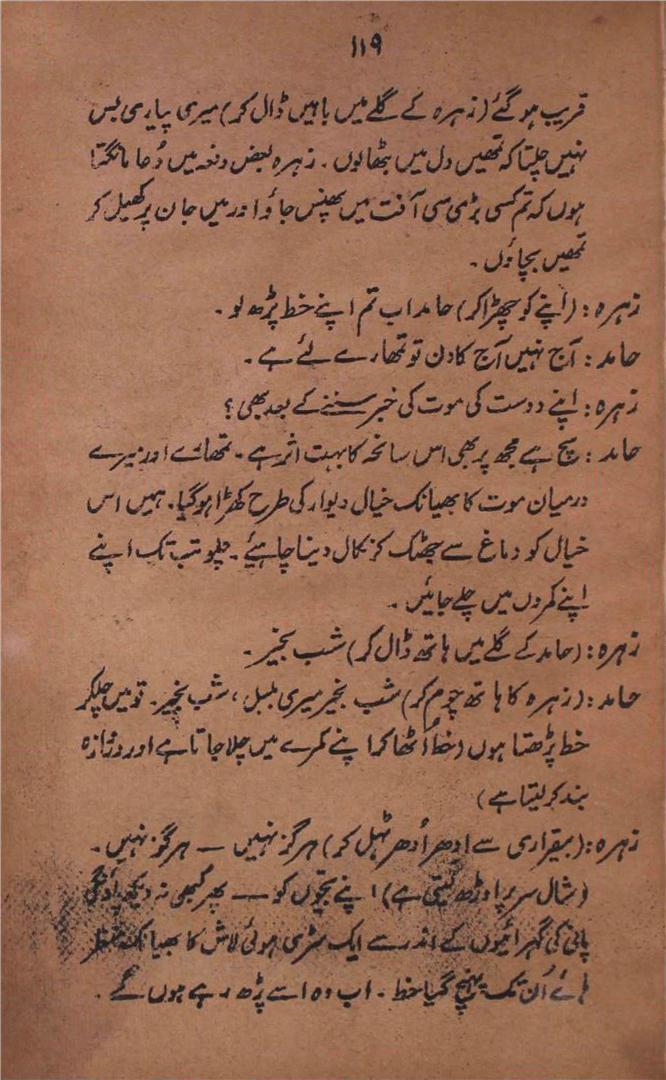 ۱۱۹
قریب ہو گئے (زہرہ کے گلے میں باہیں ڈال کر) میری پیاری بس
نہیں چلتا کہ تمھیں دل میں بٹھا لوں۔ زہرہ بعض دفعہ میں دُعا مانگتا
ہوں کہ تم کسی بڑی سی آفت میں پھنس جاؤ اور میں جان پر کھیل کر
تمھیں بچاؤں۔
زہرہ: (اپنے کو چھڑا کر) حامد اب تم اپنے خط پڑھ لو۔
حامد: آج نہیں آج کا دن تو تمھارے لئے ہے۔
زہرہ: اپنے دوست کی موت کی خبر سننے کے بعد بھی؟
حامد: سچ ہے مجھ پر بھی اس سانحہ کا بہت اثر ہے۔ تمھارے اور میرے
درمیان موت کا بھیانک خیال دیوار کی طرح کھڑا ہو گیا۔ ہمیں اس
خیال کو دماغ سے جھٹک کر نکال دینا چاہیئے۔ چلو تب تک اپنے
اپنے کمروں میں چلے جائیں۔
زہرہ: (حامد کے گلے میں ہاتھ ڈال کر) شب بخیر۔
حامد: (زہرہ کا ہاتھ چوم کر) شب بخیر میری بلبل، شب بخیر۔ تو میں چلکر
خط پڑھتا ہوں (خط اُٹھا کر اپنے کمرے میں چلا جاتا ہے اور دروازہ
بند کر لیتا ہے)
زہرہ: (بیقراری سے ادھر اُدھر ٹہل کر) ہرگز نہیں — ہرگز نہیں۔
(شال سر پر اوڑھ لیتی ہے) اپنے بچّوں کو — پھر کبھی نہ دیکھ پاؤنگی
پانی کی گہرائیوں کے اندر سے ایک سڑی ہوئی لاش کا بھیانک منظر
ہائے اُن تک پہنچ گیا خط۔ اب وہ اسے پڑھ رہے ہوں گے۔